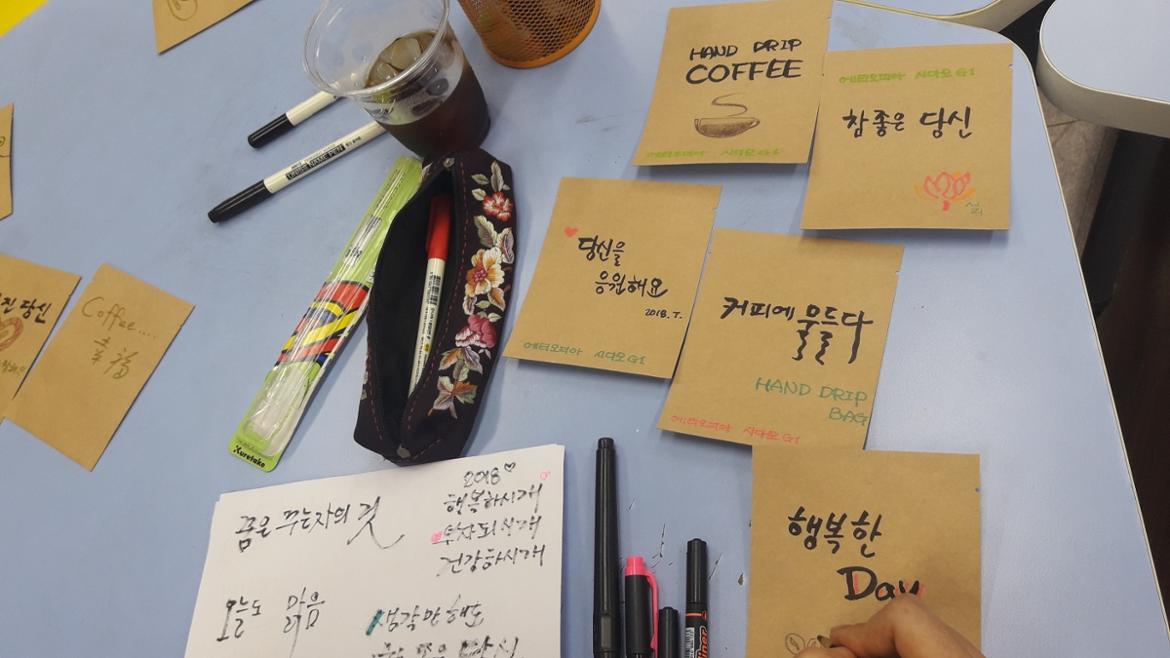 HAND DRIP
COFFEE
에티오피아 시다모 G1
에티오피아 시다모 G1
참 좋은 당신
당신을
응원해요
2018. 7.
에티오피아 시다모 G1
커피에 물들다
HAND DRIP
BAG
에티오피아 시다모 G1
행복한
Day
진 당신
Coffee...
幸福
NAME PEN
Kuretake
꿈은 꾸는자의 것
2018
행복하시개
부자되시개
건강하시개
오늘도 맑음
생각만 해도
좋은 당신